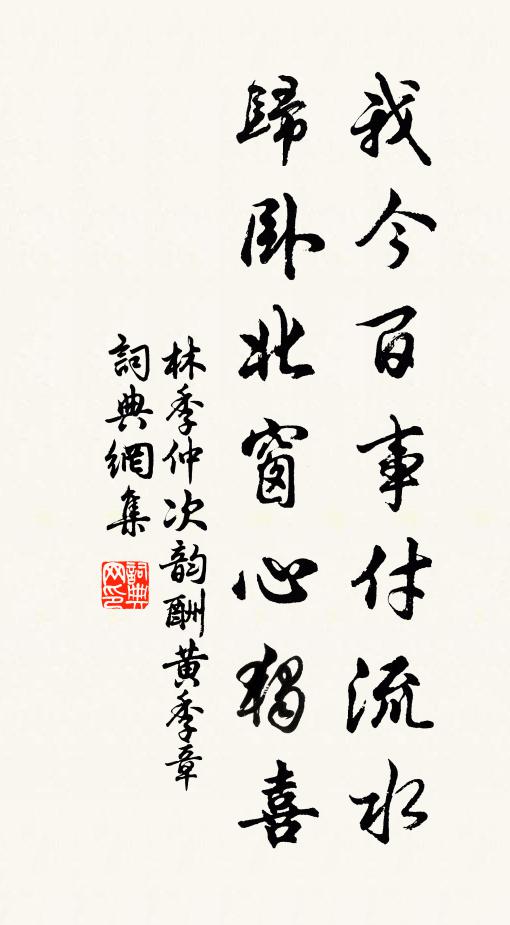 我今百事付流水
歸卧北窗心獨喜
林季仲次韵酬黄季章
詞典網集
詞典网印